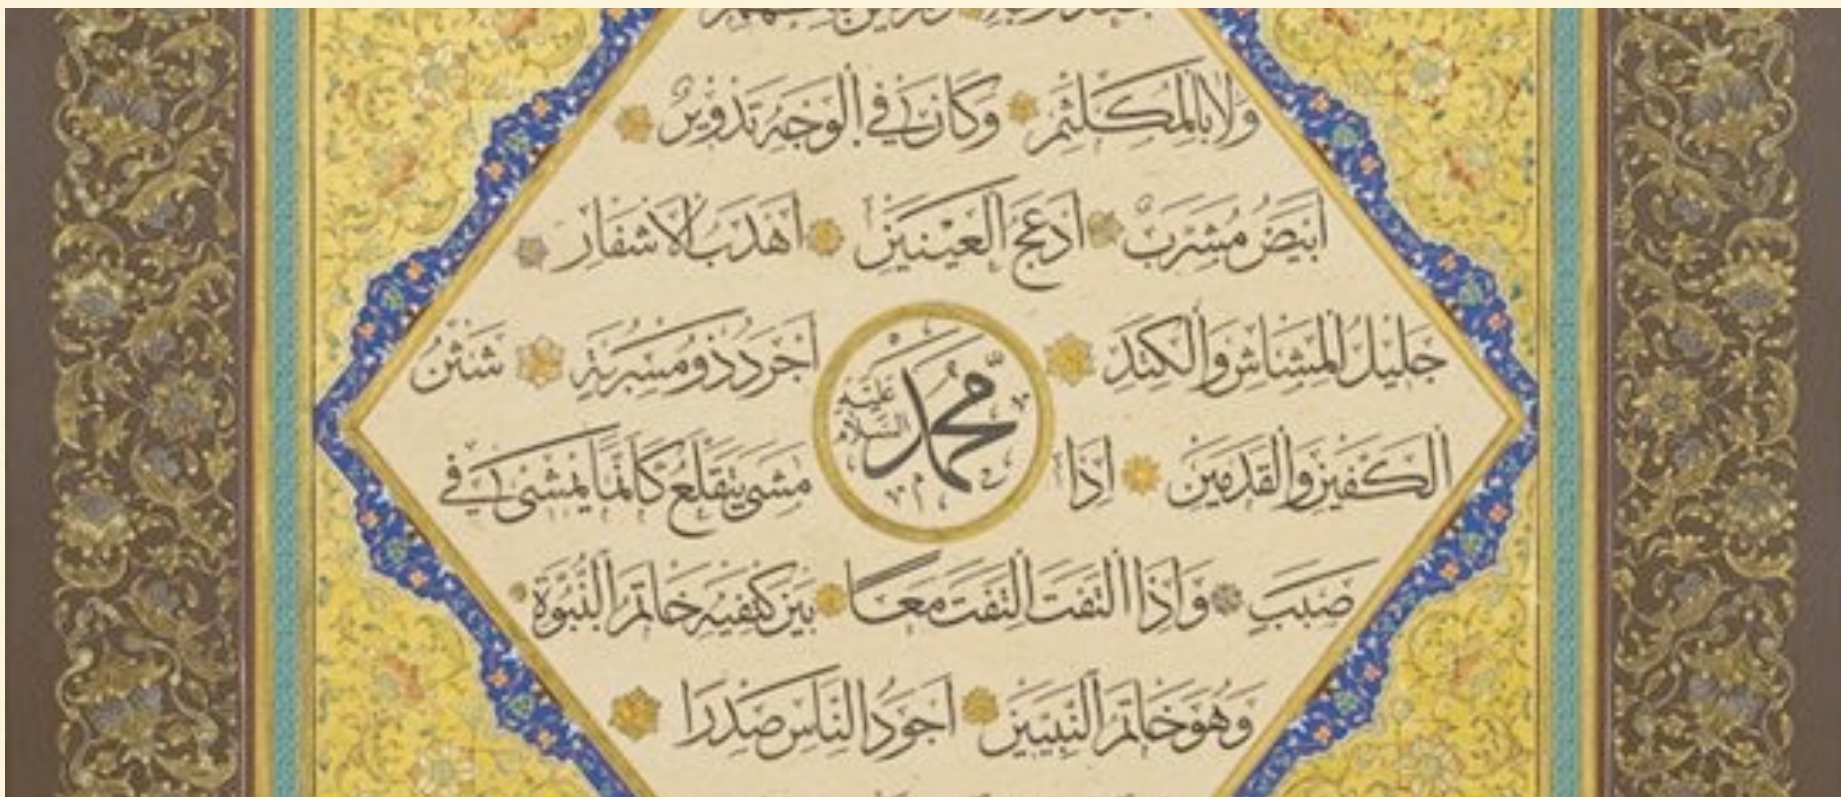 وَلَا بِالْمُكَلْثَمِ وَكَانَ فِي الْوَجْهِ تَدْوِيرٌ
اَبْيَضُ مُشْرَبٌ اَدْعَجُ الْعَيْنَيْنِ اَهْدَبُ الْاَشْفَارِ
جَلِيلُ الْمُشَاشِ وَالْكَتَدِ اَجْرَدُ ذُو مَسْرُبَةٍ شَثْنُ
مُحَمَّدٌ عَلَيْهِ السَّلَامُ
الْكَفَّيْنِ وَالْقَدَمَيْنِ اِذَا مَشَى يَتَقَلَّعُ كَاَنَّمَا يَمْشِي فِي
صَبَبٍ وَاِذَا الْتَفَتَ الْتَفَتَ مَعًا بَيْنَ كَتِفَيْهِ خَاتَمُ النُّبُوَّةِ
وَهُوَ خَاتَمُ النَّبِيِّينَ اَجْوَدُ النَّاسِ صَدْرًا